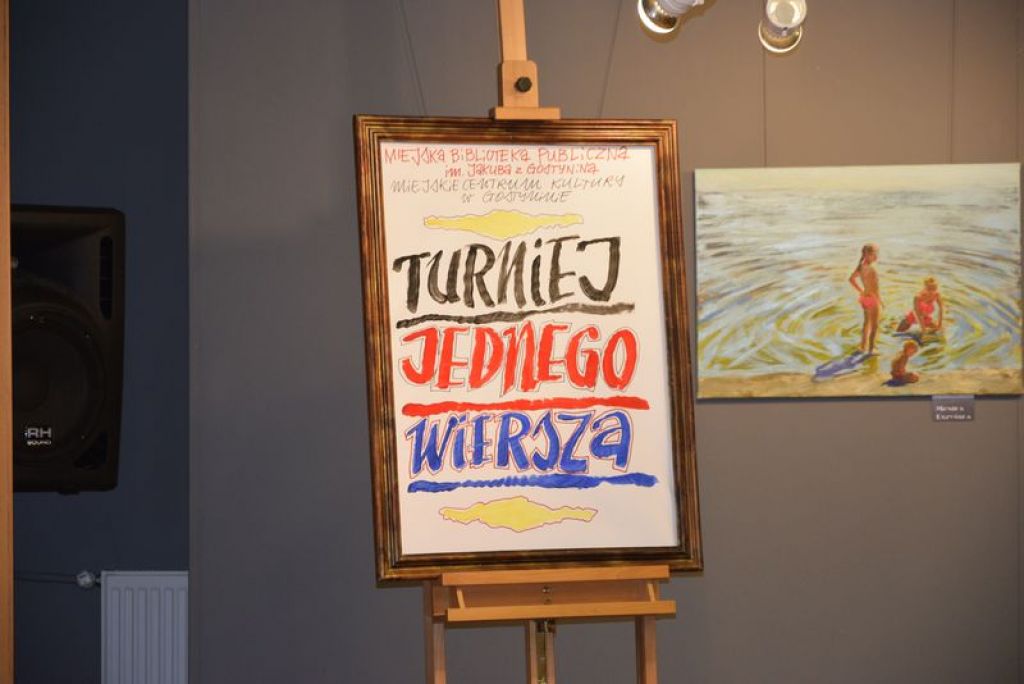 MIEJSKA BIBLIOTEKA PUBLICZNA
im. JAKUBA z GOSTYNINA
MIEJSKIE CENTRUM KULTURY
w GOSTYNINIE
TURNIEJ
JEDNEGO
WIERSZA
RH
SOUND